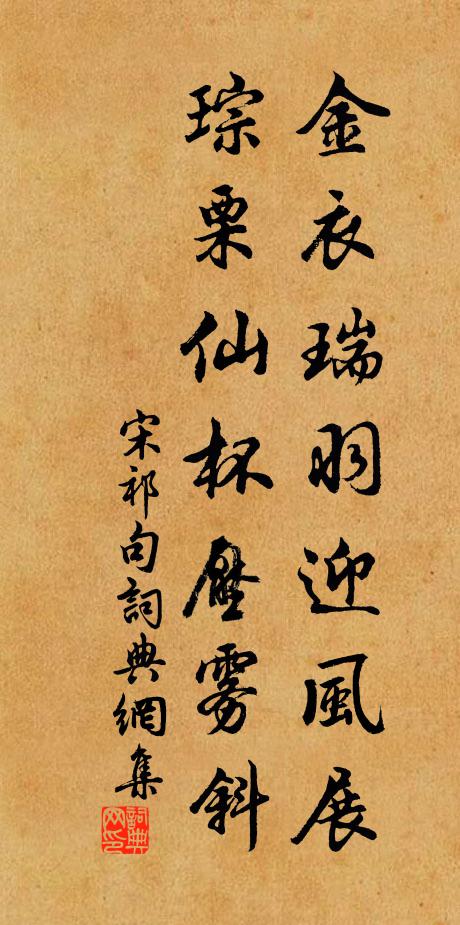 金衣瑞羽迎風展
琮栗仙杯壓雾斜
宋祁句詞典網集
詞典網印